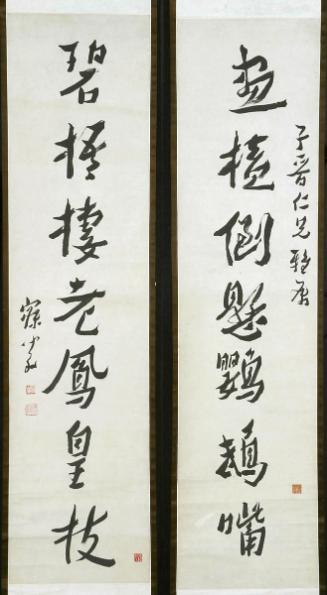 子晉仁兄雅屬
畫倒懸鸚鵡嘴
碧梧棲老鳳皇枝